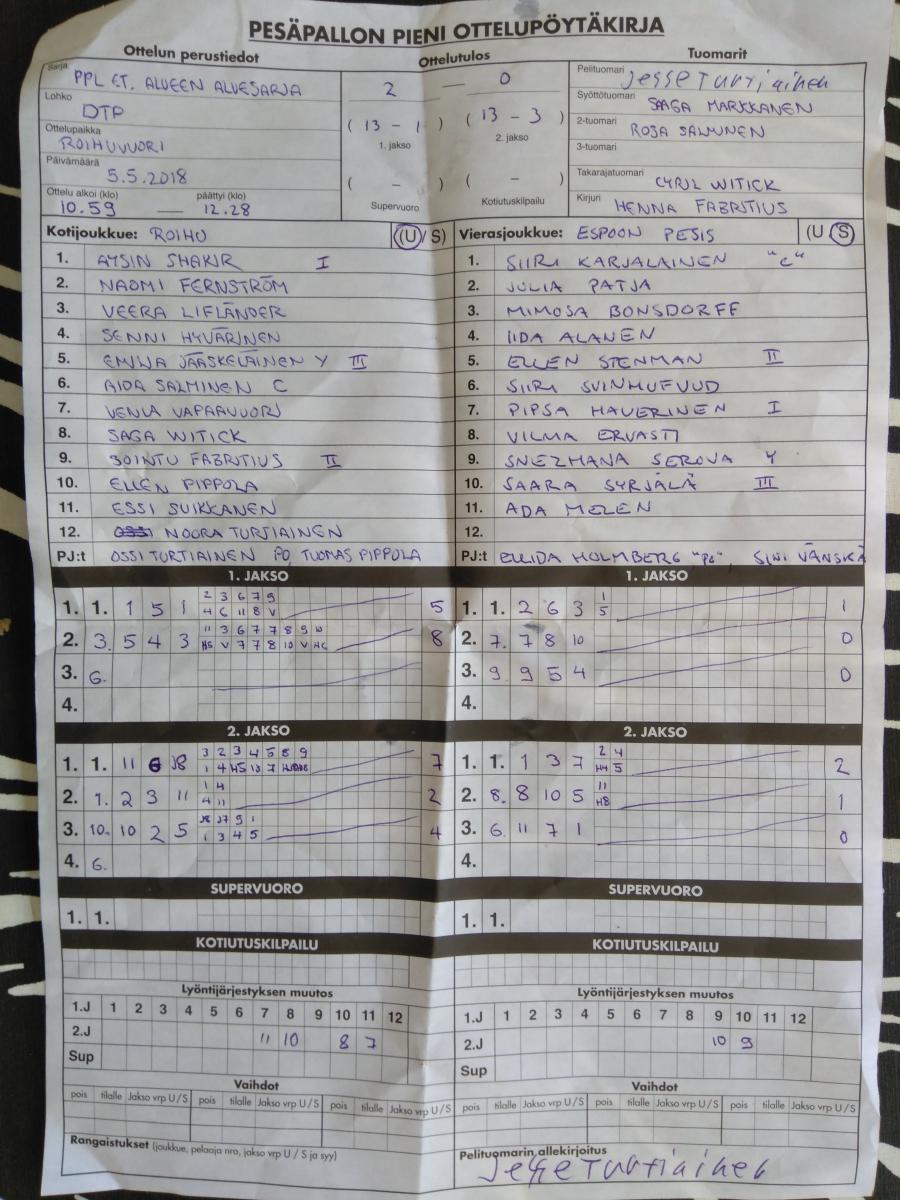 PESÄPALLON PIENI OTTELUPÖYTÄKIRJA
Ottelun perustiedot Ottelutulos Tuomarit
Sarja PPL ET. ALUEEN ALUESARJA 2 — 0 Pelituomari Jesse Turtiainen
Lohko DTP Syöttötuomari SAGA MARKKANEN
(13 - 1) (13 - 3) 2-tuomari ROSA SALMINEN
Ottelupaikka ROIHUVUORI 1. jakso 2. jakso 3-tuomari
Päivämäärä 5.5.2018 ( - ) ( - ) Takarajatuomari CYRIL WITICK
Ottelu alkoi (klo) 10.59 — päättyi (klo) 12.28 Supervuoro Kotiutuskilpailu Kirjuri HENNA FABRITIUS
Kotijoukkue: ROIHU (U/S) Vierasjoukkue: ESPOON PESIS (U S)
1. AYSIN SHAKIR I 1. SIIRI KARJALAINEN "C"
2. NAOMI FERNSTRÖM 2. JULIA PATJA
3. VEERA LIFLÄNDER 3. MIMOSA BONSDORFF
4. SENNI HYVÄRINEN 4. IIDA ALANEN
5. EMILIA JÄÄSKELÄINEN Y III 5. ELLEN STENMAN II
6. AIDA SALMINEN C 6. SIIRI SVINHUFVUD
7. VENLA VAPAAVUORI 7. PIPSA HAVERINEN I
8. SAGA WITICK 8. VILMA ERVASTI
9. SOINTU FABRITIUS II 9. SNEZHANA SEROVA Y
10. ELLEN PIPPOLA 10. SAARA SYRJÄLÄ III
11. ESSI SUIKKANEN 11. ADA MELEN
12. NOORA TURTIAINEN 12.
PJ:t OSSI TURTIAINEN PO, TUOMAS PIPPOLA PJ:t ELLIDA HOLMBERG "PE" SINI VÄNSKÄ
1. JAKSO 1. JAKSO
2 3 6 7 9 1
1. 1. 1 5 1 4 6 11 8 V 5 1. 1. 2 6 3 5 1
11 3 6 7 7 8 9 10
2. 3. 5 4 3 H5 V 7 7 8 10 V 8 2. 7. 7 8 10 0
3. 6. 3. 9. 9 5 4 0
4. 4.
2. JAKSO 2. JAKSO
3 2 3 4 5 8 9 2 4
1. 1. 11 6 J8 1 4 H5 7 7 1. 1. 1 3 7 H4 5 2
1 4 11
2. 1. 2 3 11 4 11 2 2. 8. 8 10 5 H8 1
J8 J7 9 1
3. 10. 10 2 5 1 3 4 5 4 3. 6. 11 7 1 0
4. 6. 4.
SUPERVUORO SUPERVUORO
1. 1. 1. 1.
KOTIUTUSKILPAILU KOTIUTUSKILPAILU
Lyöntijärjestyksen muutos Lyöntijärjestyksen muutos
1.J 1 2 3 4 5 6 7 8 9 10 11 12 1.J 1 2 3 4 5 6 7 8 9 10 11 12
2.J 11 10 8 7 2.J 10 9
Sup Sup
Vaihdot Vaihdot
pois tilalle Jakso vrp U/S pois tilalle Jakso vrp U/S pois tilalle Jakso vrp U/S pois tilalle Jakso vrp U/S pois tilalle Jakso vrp U/S pois tilalle Jakso vrp U/S
Rangaistukset (joukkue, pelaaja nro, jakso vrp U / S ja syy) Pelituomarin allekirjoitus
Jesse Turtiainen